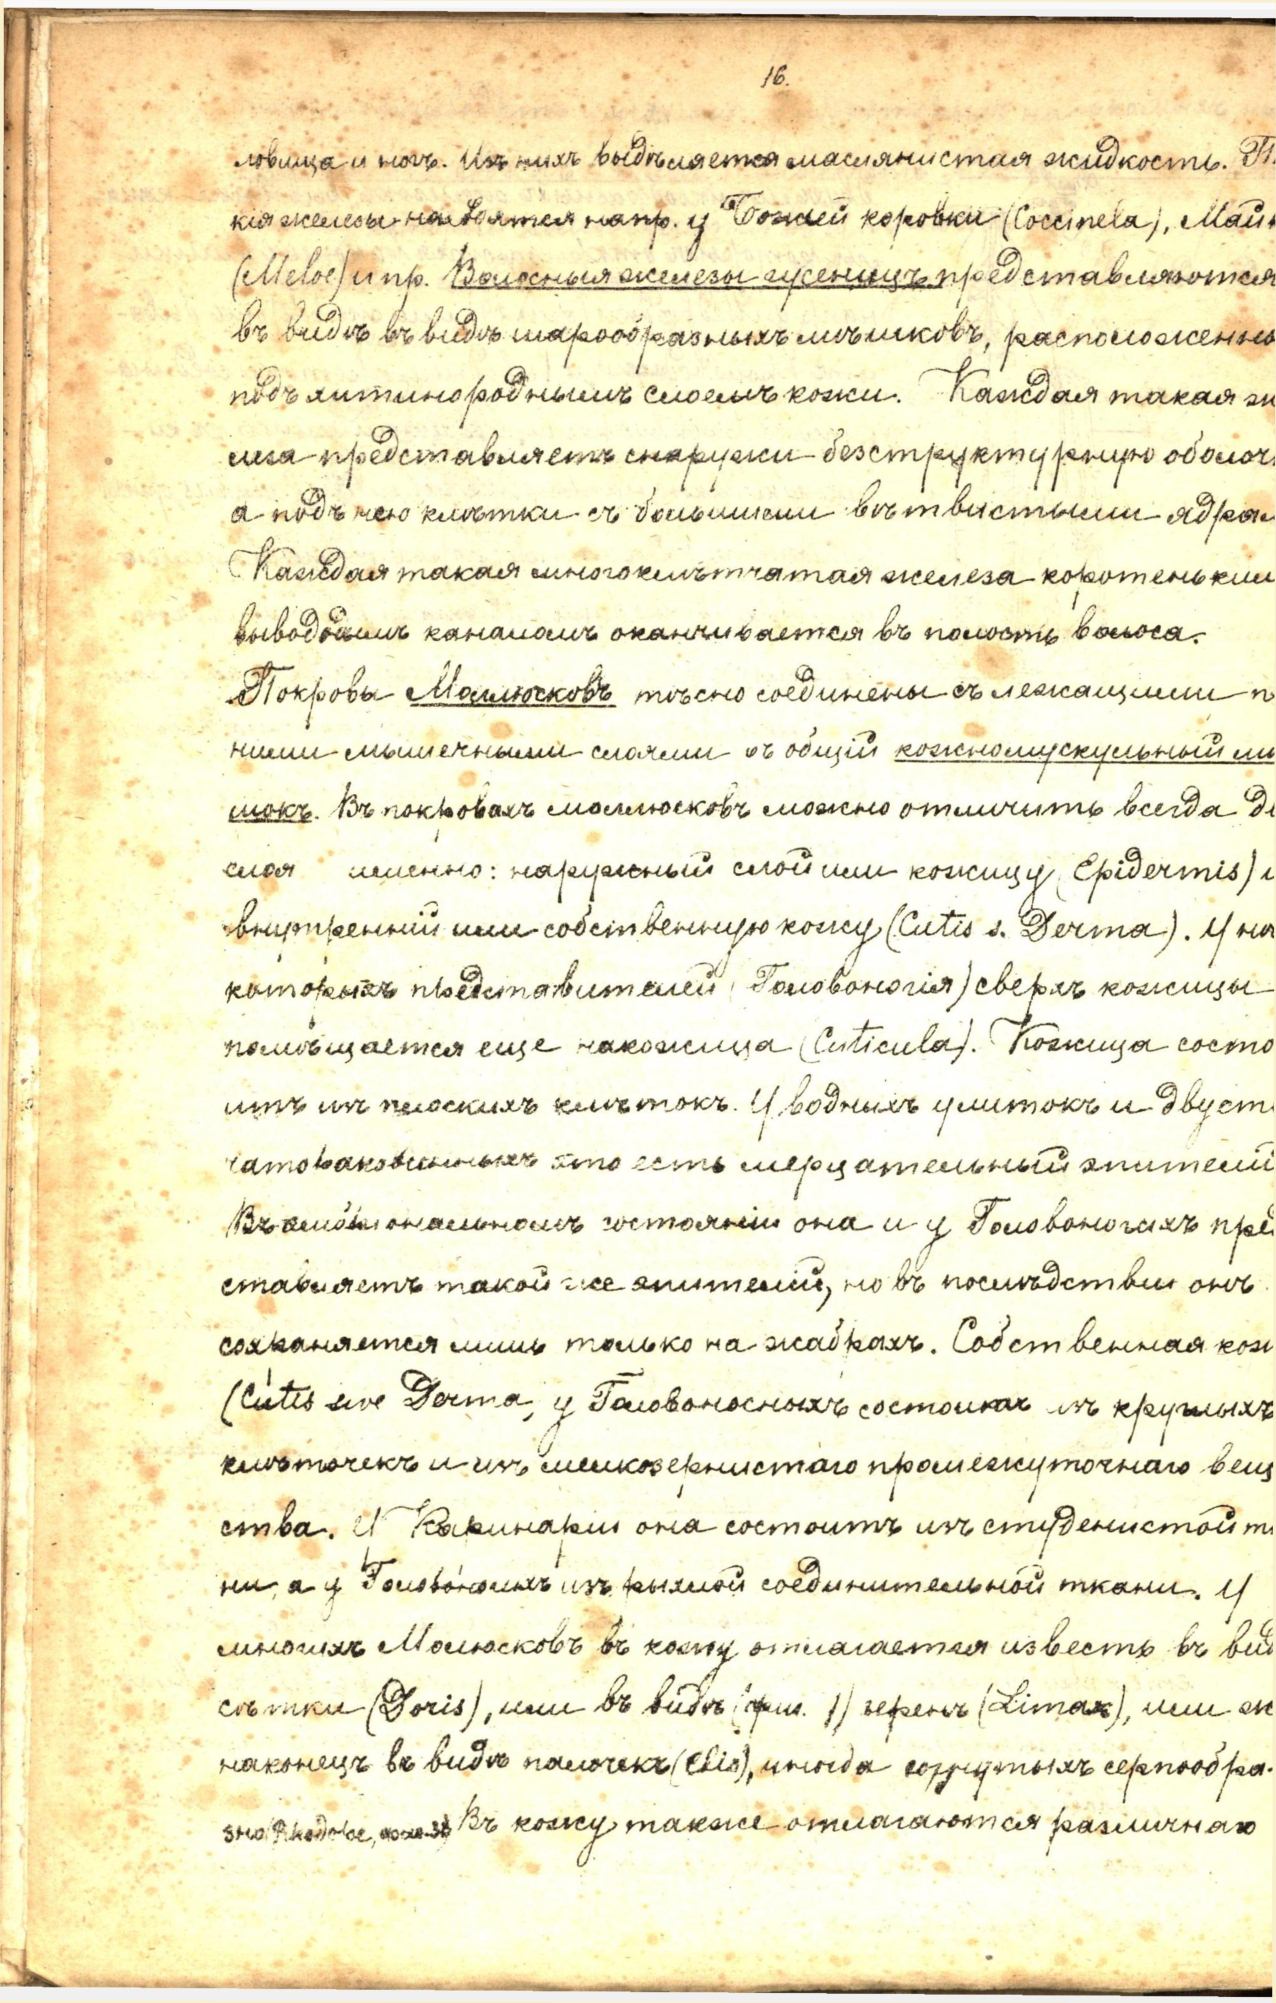 16.
ловища и ногъ. Изъ нихъ выдѣляется маслянистая жидкость. Т
кія железы находятся напр. у Божей коровки (Coccinela), Май
(Meloe) и пр. Волосныя железы гусеницъ представляются
въ видѣ въ видѣ шарообразныхъ мѣшковъ, расположенны
подъ хитинороднымъ слоемъ кожи. Каждая такая же
леза представляетъ снаружи безструктурную оболоч
а подъ нею клѣтки съ большими вѣтвистыми ядра
Каждая такая многоклѣтчатая железа коротеньким
выводнымъ каналомъ оканчивается въ полость волоса.
Покровы Моллюсковъ тѣсно соединены съ лежащими п
ними мышечными слоями въ общій кожномускульный мѣ
шокъ. Въ покровахъ моллюсковъ можно отличить всегда дв
слоя именно: наружный слой или кожицу (Epidermis) и
внутренній или собственную кожу (Cutis s. Derma). У нѣ
которыхъ представителей (Головоногія) сверхъ кожицы
помѣщается еще накожица (Cuticula). Кожица состо
итъ изъ плоскихъ клѣтокъ. У водныхъ улитокъ и двуст
чатораковинныхъ это есть мерцательный эпителій
Въ эмбріональномъ состояніи она и у Головоногихъ пред
ставляетъ такой же эпителій, но въ послѣдствіи онъ
сохраняется лишь только на жабрахъ. Собственная кож
(Cutis sive Derma, у Головоносныхъ состоитъ изъ круглыхъ
клѣточекъ и изъ мелкозернистаго промежуточнаго вещ
ства. У Каринаріи она состоитъ изъ студенистой тк
ни, а у Головоногихъ изъ рыхлой соединительной ткани. У
многихъ Молюсковъ въ кожу отлагается известь въ вид
сѣтки (Doris), или въ видѣ (фиг. 1) зеренъ (Limax), или ж
наконецъ въ видѣ палочекъ, иногда согнутыхъ серпообра-
зно Въ кожу также отлагаются различнаго